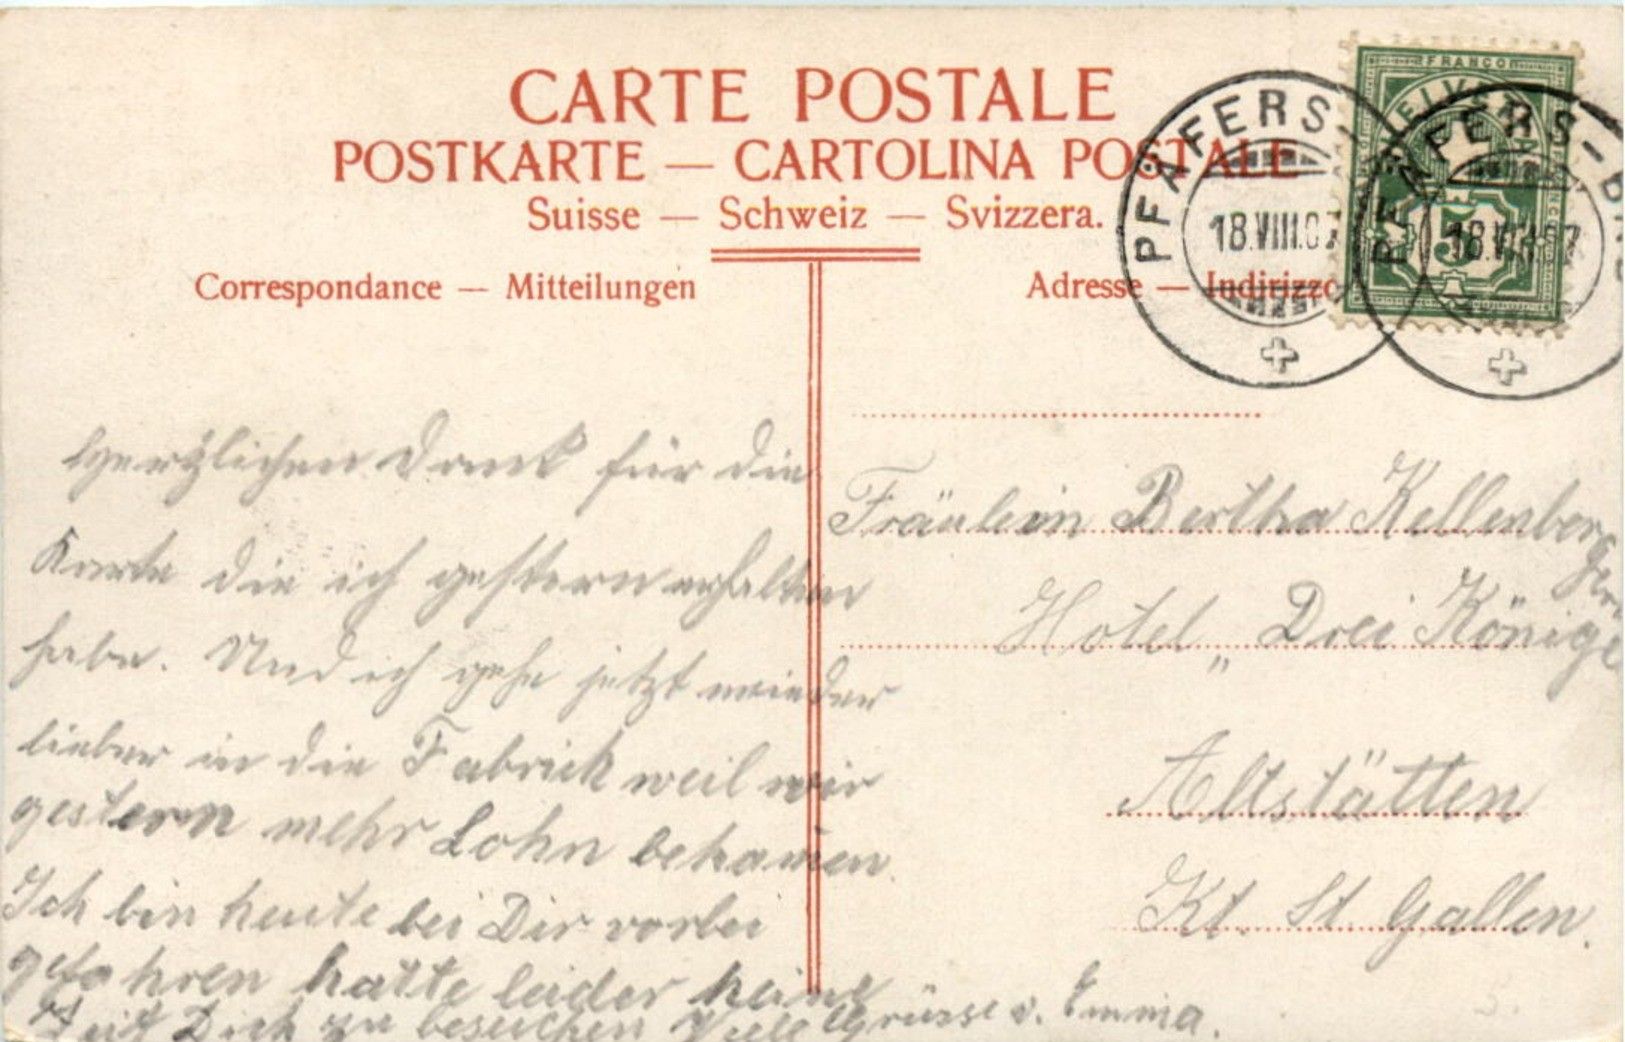 CARTE POSTALE
POSTKARTE — CARTOLINA POSTALE
Suisse — Schweiz — Svizzera.
Correspondance — Mitteilungen
Adresse — Indirizzo
PFÄFERS-
18.VIII.07
PFÄFERS-BAD
18.VIII.07
FRANCO
HELVETIA
5
Herzlichen Dank für die
Karte die ich gestern erhalten
habe. Und ich gehe jetzt wieder
lieber in die Fabrick weil wir
gestern mehr Lohn bekamen.
Ich bin heute bei Dir vorbei
gefahren hatte leider keine
Zeit Dich zu besuchen Viele Grüsse v. Emma.
Fräulein Bertha Kellenberger
Hotel „Drei Könige
Altstätten
Kt. St. Gallen.